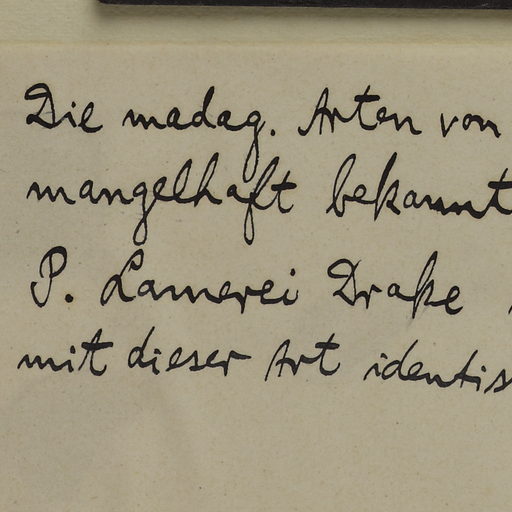 Die madag. Arten von
mangelhaft bekannt
P. Lamerei Drake
mit dieser Art identis